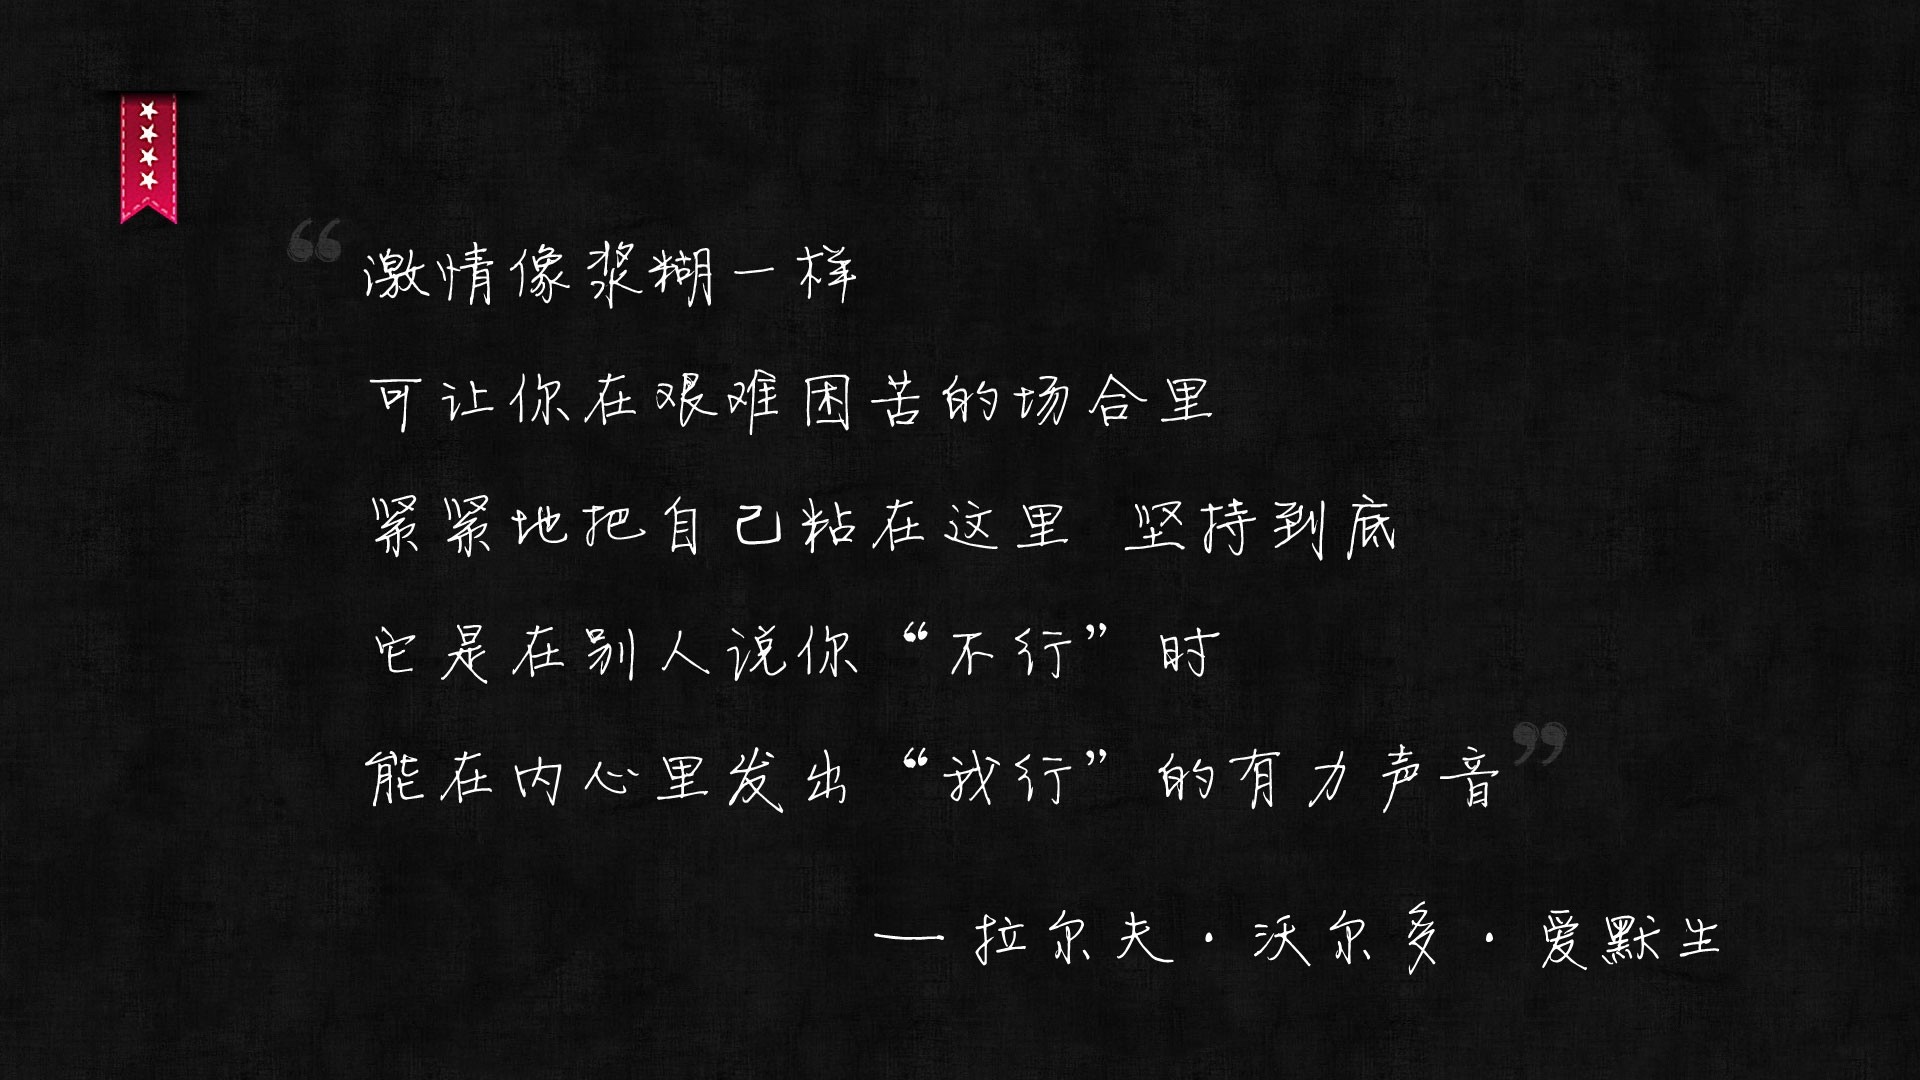 “激情像浆糊一样
可让你在艰难困苦的场合里
紧紧地把自己粘在这里 坚持到底
它是在别人说你“不行”时
能在内心里发出“我行”的有力声音”
— 拉尔夫·沃尔多·爱默生